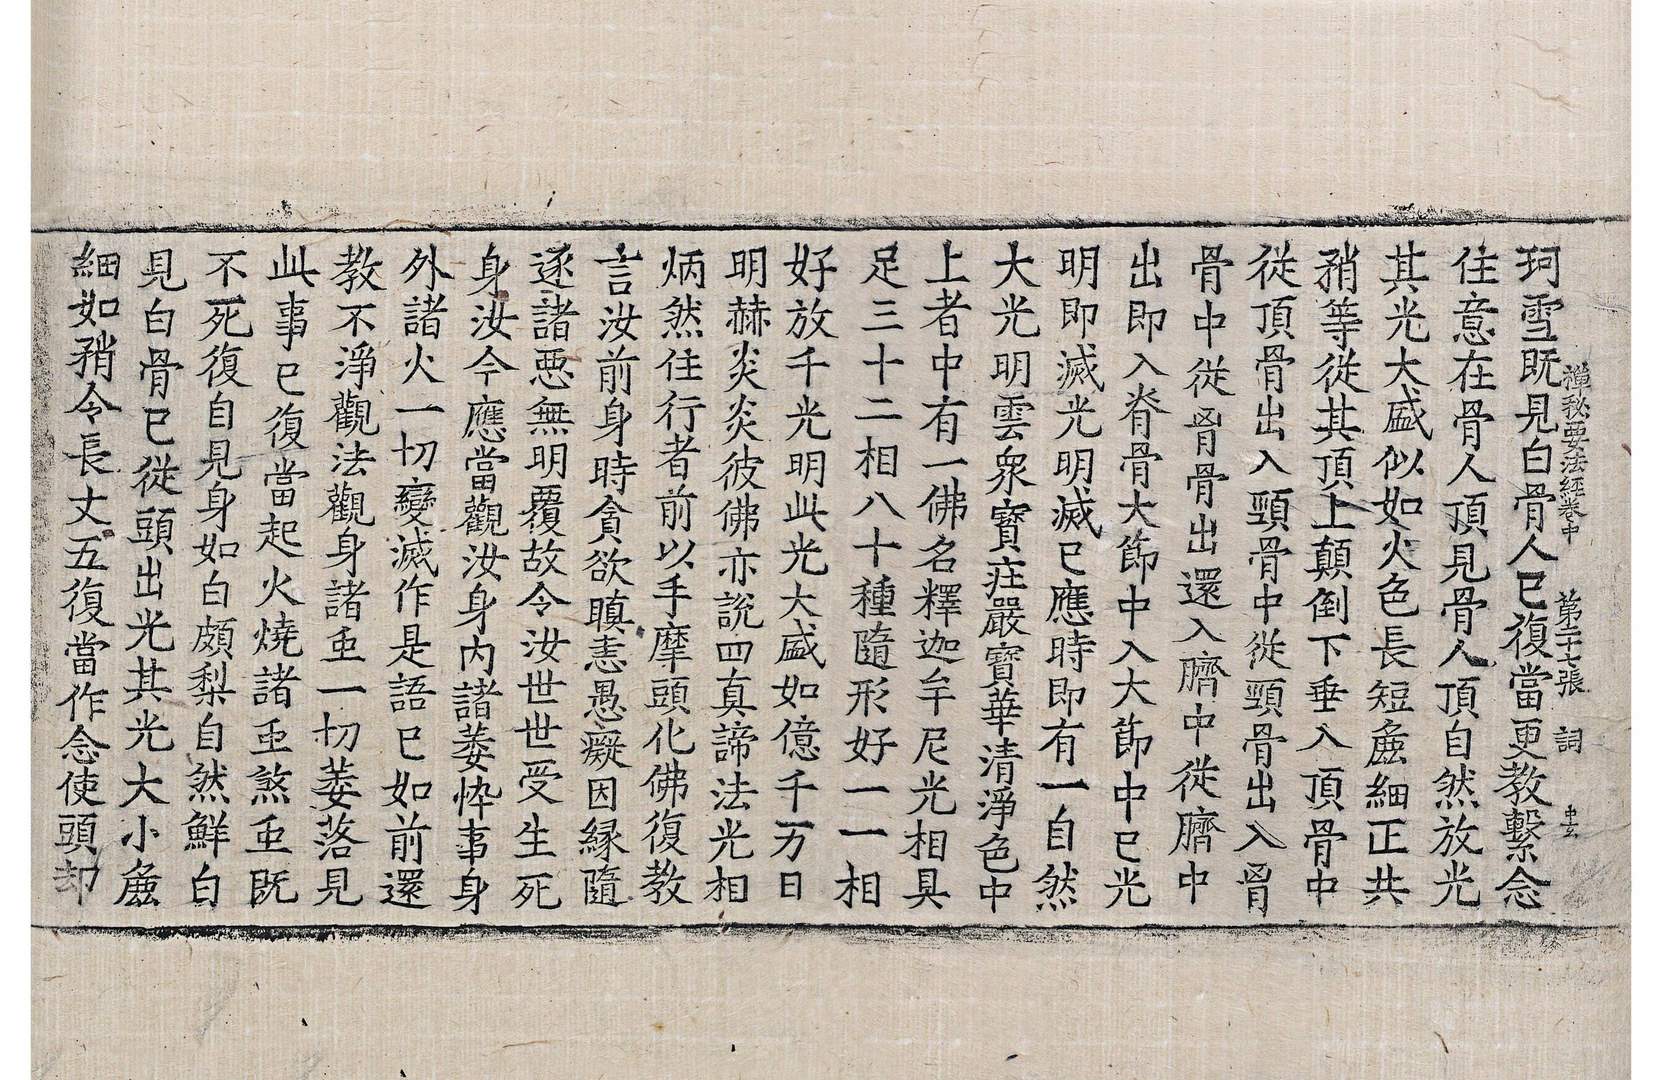 禪秘要法經卷中 第二十七張 詞
珂雪旣見白骨人已復當更教繫念
住意在骨人頂見骨人頂自然放光
其光大盛似如火色長短麁細正共
矟等從其頂上顛倒下垂入頂骨中
從頂骨出入頸骨中從頸骨出入胷
骨中從胷骨出還入臍中從臍中
出即入脊骨大節中入大節中已光
明即滅光明滅已應時即有一自然
大光明雲衆寶莊嚴寶華清淨色中
上者中有一佛名釋迦牟尼光相具
足三十二相八十種隨形好一一相
好放千光明此光大盛如億千万日
明赫炎炎彼佛亦說四真諦法光相
炳然住行者前以手摩頭化佛復教
言汝前身時貪欲瞋恚愚癡因緣隨
逐諸惡無明覆故令汝世世受生死
身汝今應當觀汝身內諸萎悴事身
外諸火一切變滅作是語已如前還
教不淨觀法觀身諸虫一切萎落見
此事已復當起火燒諸虫煞虫旣
不死復自見身如白頗梨自然鮮白
見白骨已從頭出光其光大小麁
細如矟令長丈五復當作念使頭却